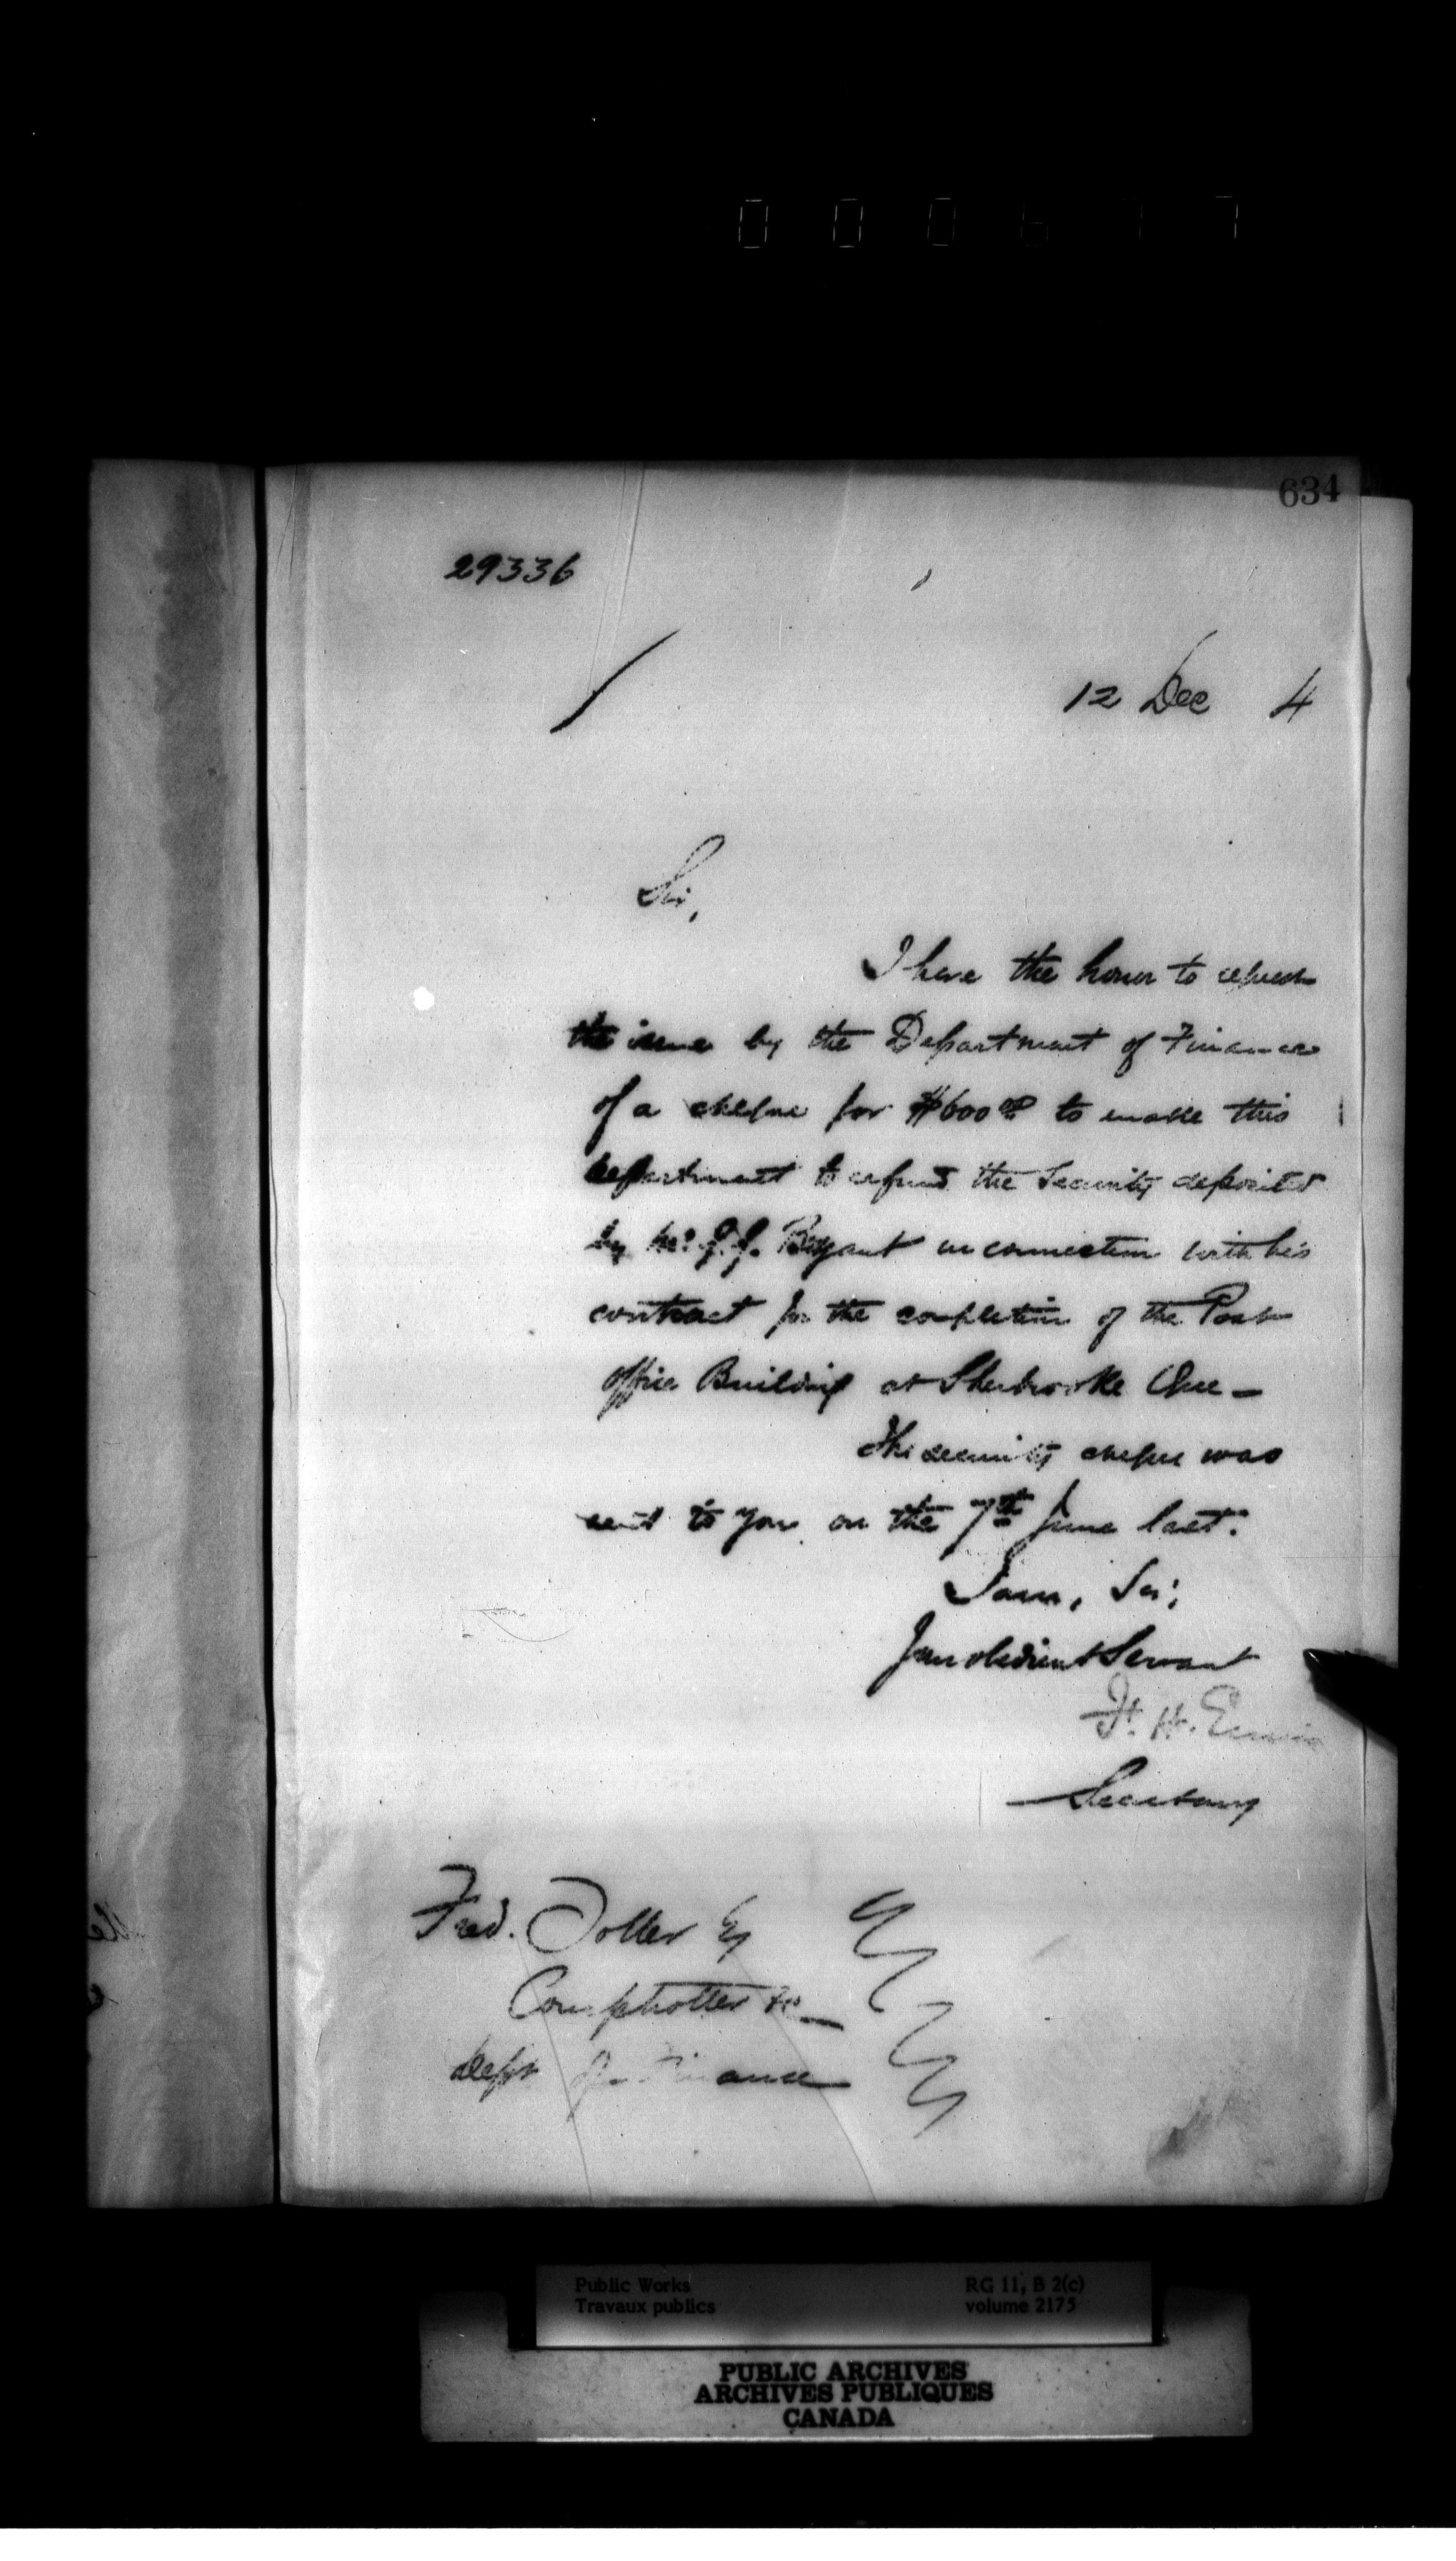 634
29336
12 Dec 4
Sir,
I have the honor to request
the issue by the Department of Finance
of a cheque for $600.00 to enable this
department to refund the Security deposited
by Mr. J. J. Bryant in connection with his
contract for the completion of the Post
Office Building at Sherbrooke Que —
The security cheque was
sent to you on the 7th June last.
I am, Sir,
Your obedient Servant
H. Ennis
Secretary
Fred. Toller Esq
Comptroller &c
Dept of Finance
Public Works
Travaux publics
RG 11, B 2(c)
volume 2175
PUBLIC ARCHIVES
ARCHIVES PUBLIQUES
CANADA